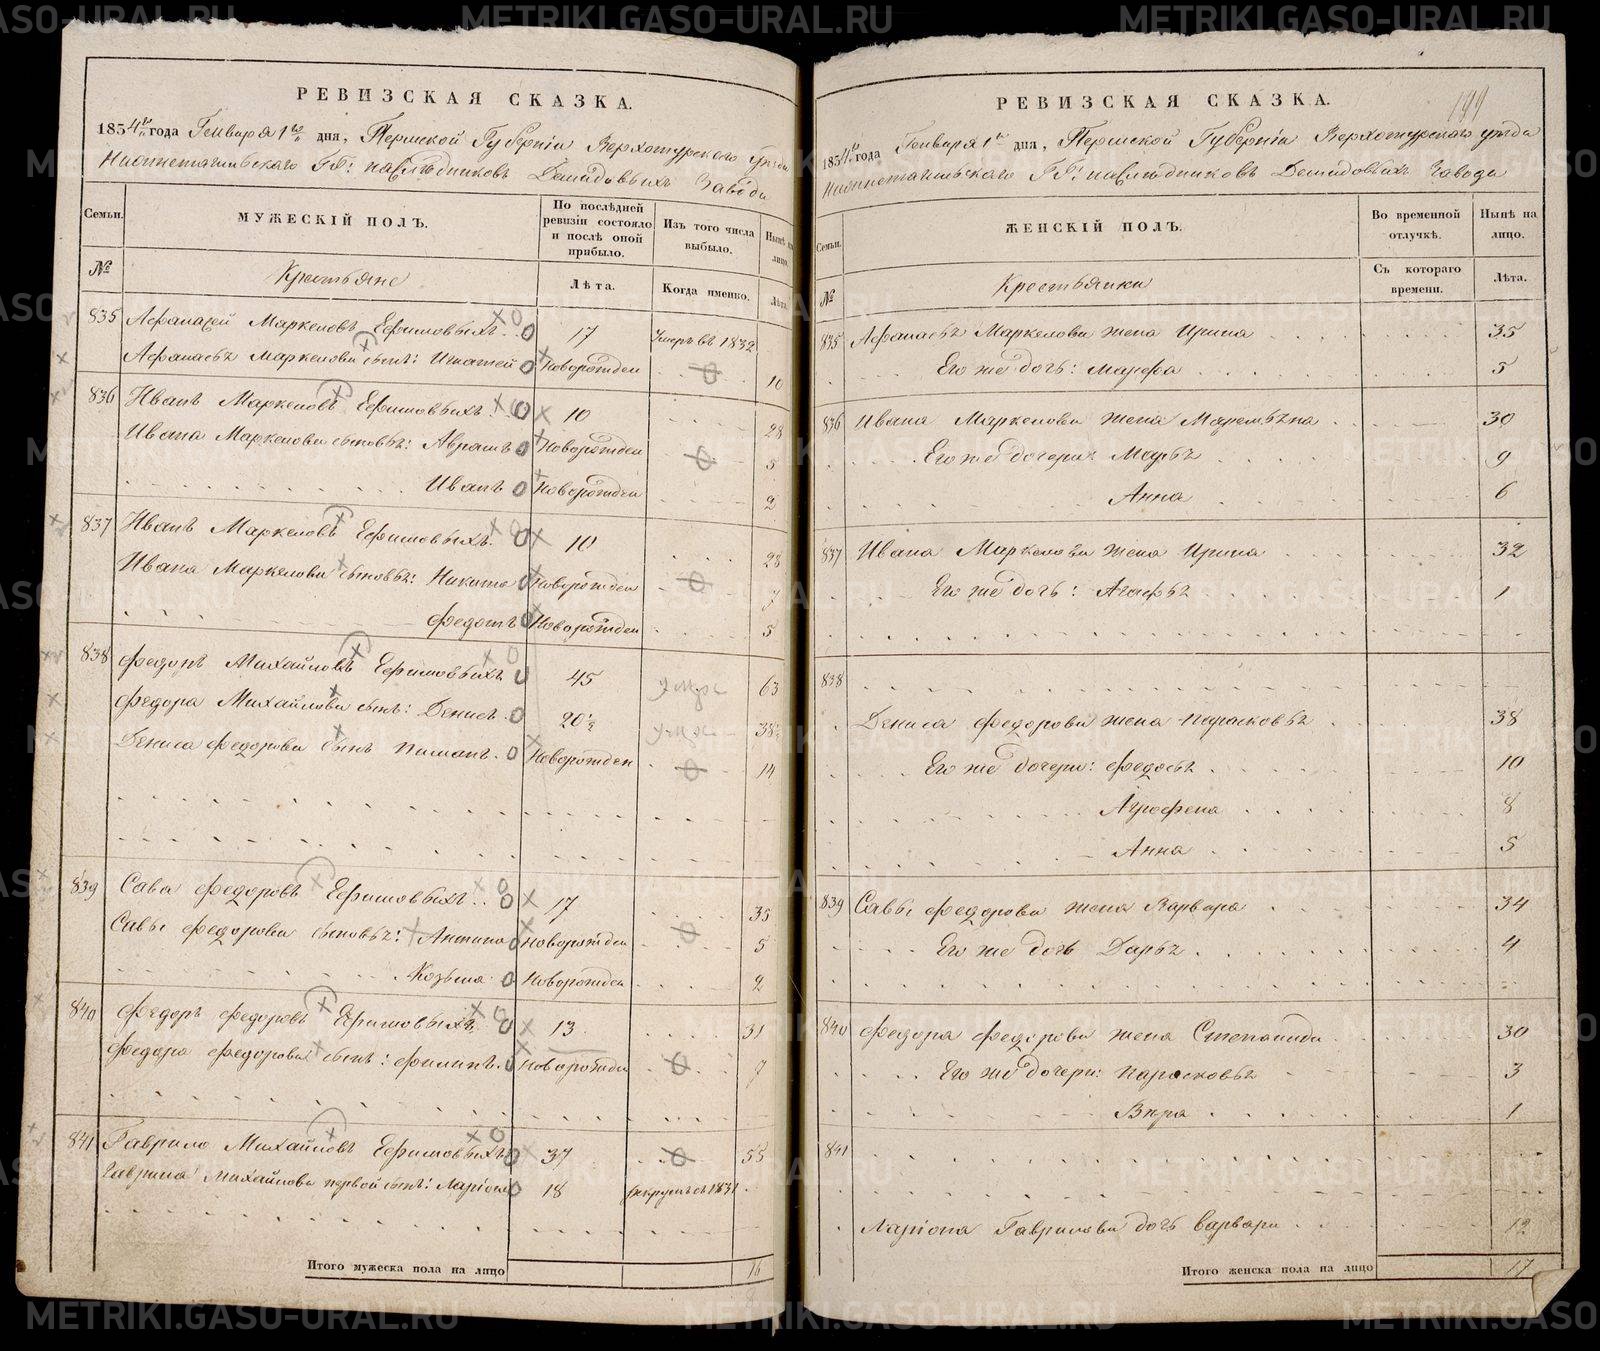 РЕВИЗСКАЯ СКАЗКА.
1834го года Генваря 1го дня, Пермской Губерніи Верхотурского уѣзда
Нижнетагильскаго ГГ: наслѣдниковъ Демидовыхъ завода
Семьи.
МУЖЕСКІЙ ПОЛЪ.
По послѣдней ревизіи состояло и послѣ оной прибыло.
Изъ того числа выбыло.
Нынѣ на лицо.
№
Крестьяне
Лѣта.
Когда именно.
Лѣта.
835 Афанасей Маркеловъ Ефимовыхъ 17 Умеръ въ 1832
Афанасья Маркелова сынъ: Игнатей Новорожден 10
836 Иванъ Маркеловъ Ефимовыхъ 10 28
Ивана Маркелова сыновья: Аврамъ Новорожден 5
Иванъ Новорожден 2
837 Иванъ Маркеловъ Ефимовыхъ 10 28
Ивана Маркелова сыновья: Никита Новорожден 7
Федотъ Новорожден 5
838 Федоръ Михайловъ Ефимовыхъ 45 умеръ 63
Федора Михайлова сынъ: Денисъ 20½ 38½
Дениса Федорова сынъ Пиманъ Новорожден 14
839 Сава Федоровъ Ефимовыхъ 17 35
Савы Федорова сыновья: Антипа Новорожден 5
Козьма Новорожден 2
840 Федоръ Федоровъ Ефимовыхъ 13 31
Федора Федорова сынъ: Филипъ Новорожден 7
841 Гаврило Михайловъ Ефимовыхъ 37 55
Гаврила Михайлова первой сынъ: Ларіонъ 18 рекрутъ съ 1831
Итого мужеска пола на лицо 16
РЕВИЗСКАЯ СКАЗКА.
199
1834го года Генваря 1го дня, Пермской Губерніи Верхотурскаго уѣзда
Нижнетагильскаго ГГ: наслѣдниковъ Демидовыхъ завода
Семьи.
ЖЕНСКІЙ ПОЛЪ.
Во временной отлучкѣ.
Нынѣ на лицо.
№
Крестьянки
Съ котораго времени.
Лѣта.
835 Афанасья Маркелова жена Ирина 35
Его же дочь: Марфа 5
836 Ивана Маркелова жена Маремьяна 30
Его же дочери: Марья 9
Анна 6
837 Ивана Маркелова жена Ирина 32
Его же дочь: Агафья 1
838
Дениса Федорова жена Парасковья 38
Его же дочери: Федосья 10
Агрофена 8
Анна 5
839 Савы Федорова жена Варвара 34
Его же дочь Дарья 4
840 Федора Федорова жена Степанида 30
Его же дочери: Парасковья 3
Вѣра 1
841
Ларіона Гаврилова дочь Варвара 12
Итого женска пола на лицо 17
METRIKI.GASO-URAL.RU